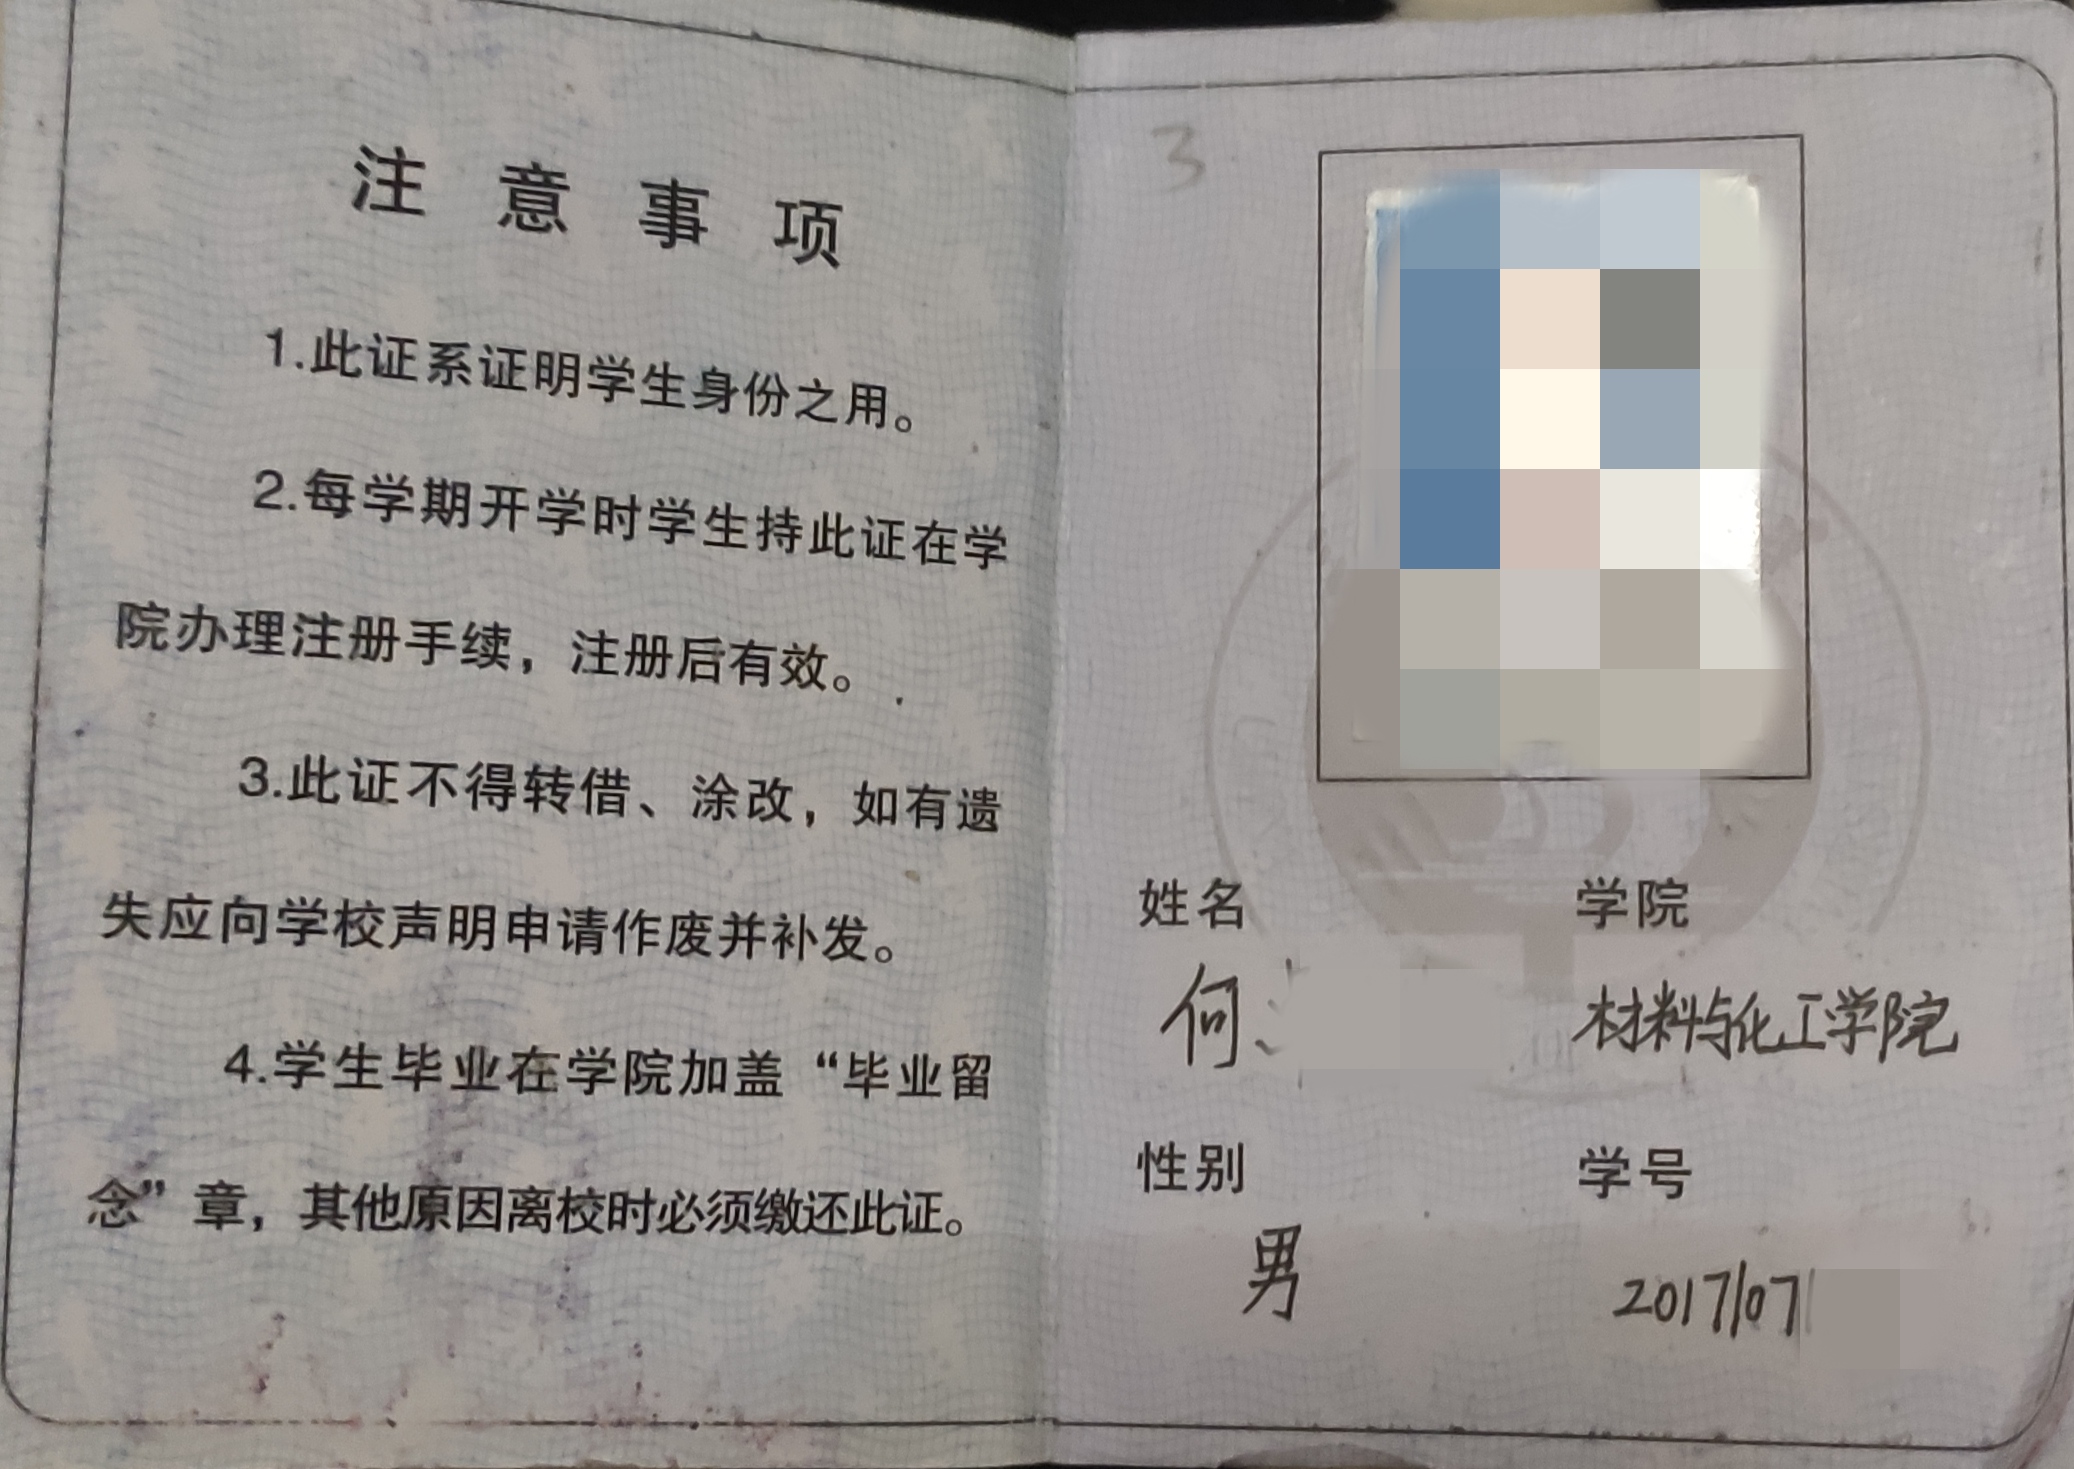 注意事项
1.此证系证明学生身份之用。
2.每学期开学时学生持此证在学
院办理注册手续，注册后有效。
3.此证不得转借、涂改，如有遗
失应向学校声明申请作废并补发。
4.学生毕业在学院加盖“毕业留
念”章，其他原因离校时必须缴还此证。
3
姓名 学院
何 材料与化工学院
性别 学号
男 2017107